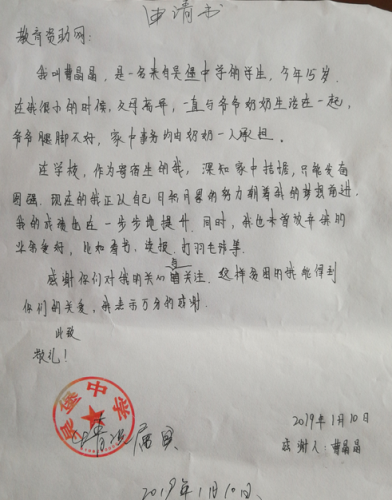 申请书
教育资助网：
我叫曹晶晶，是一名来自吴堡中学的学生，今年15岁，
在我很小的时候，父母离异，一直与爷爷奶奶生活在一起，
爷爷腿脚不好，家中事务均由奶奶一人承担。
在学校，作为寄宿生的我，深知家中拮据，只能发奋
图强。现在的我正以自己日积月累的努力朝着我的梦想前进，
我的成绩也在一步步地提升。同时，我也未曾放弃我的
业余爱好，比如看书、速报、打羽毛球等。
感谢你们对我的关心与关注。这样贫困的我能得到
你们的关爱，我表示万分的感谢。
此致
敬礼！
2019年1月10日
感谢人：曹晶晶
堡中学
申请
属实
2019年1月10日